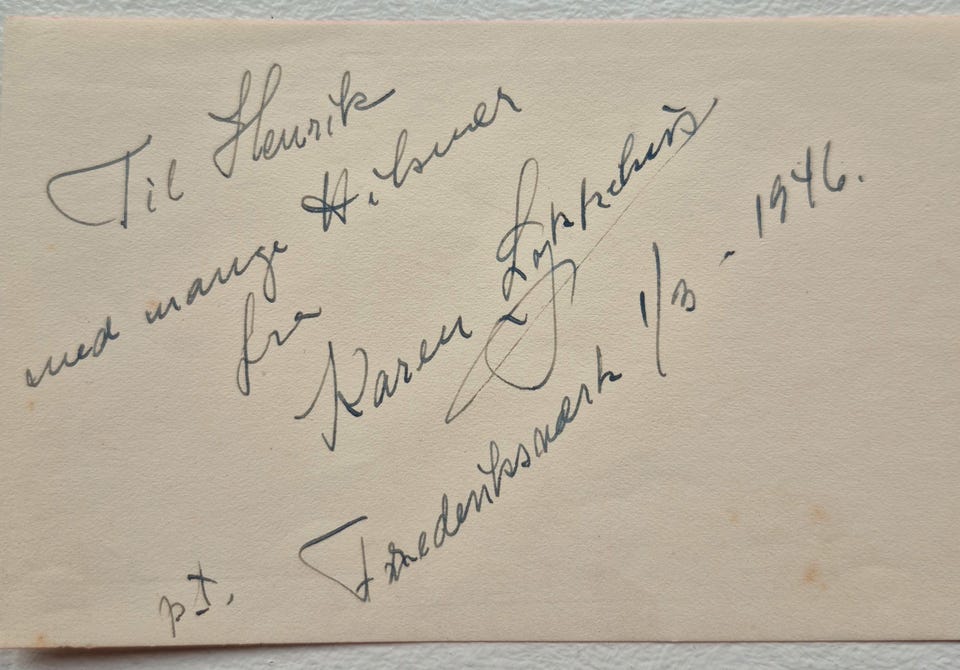 Til Henrik
med mange Hilsner
fra
Karen Lykkehus
p.t. Frederiksværk 1/3 - 1946.